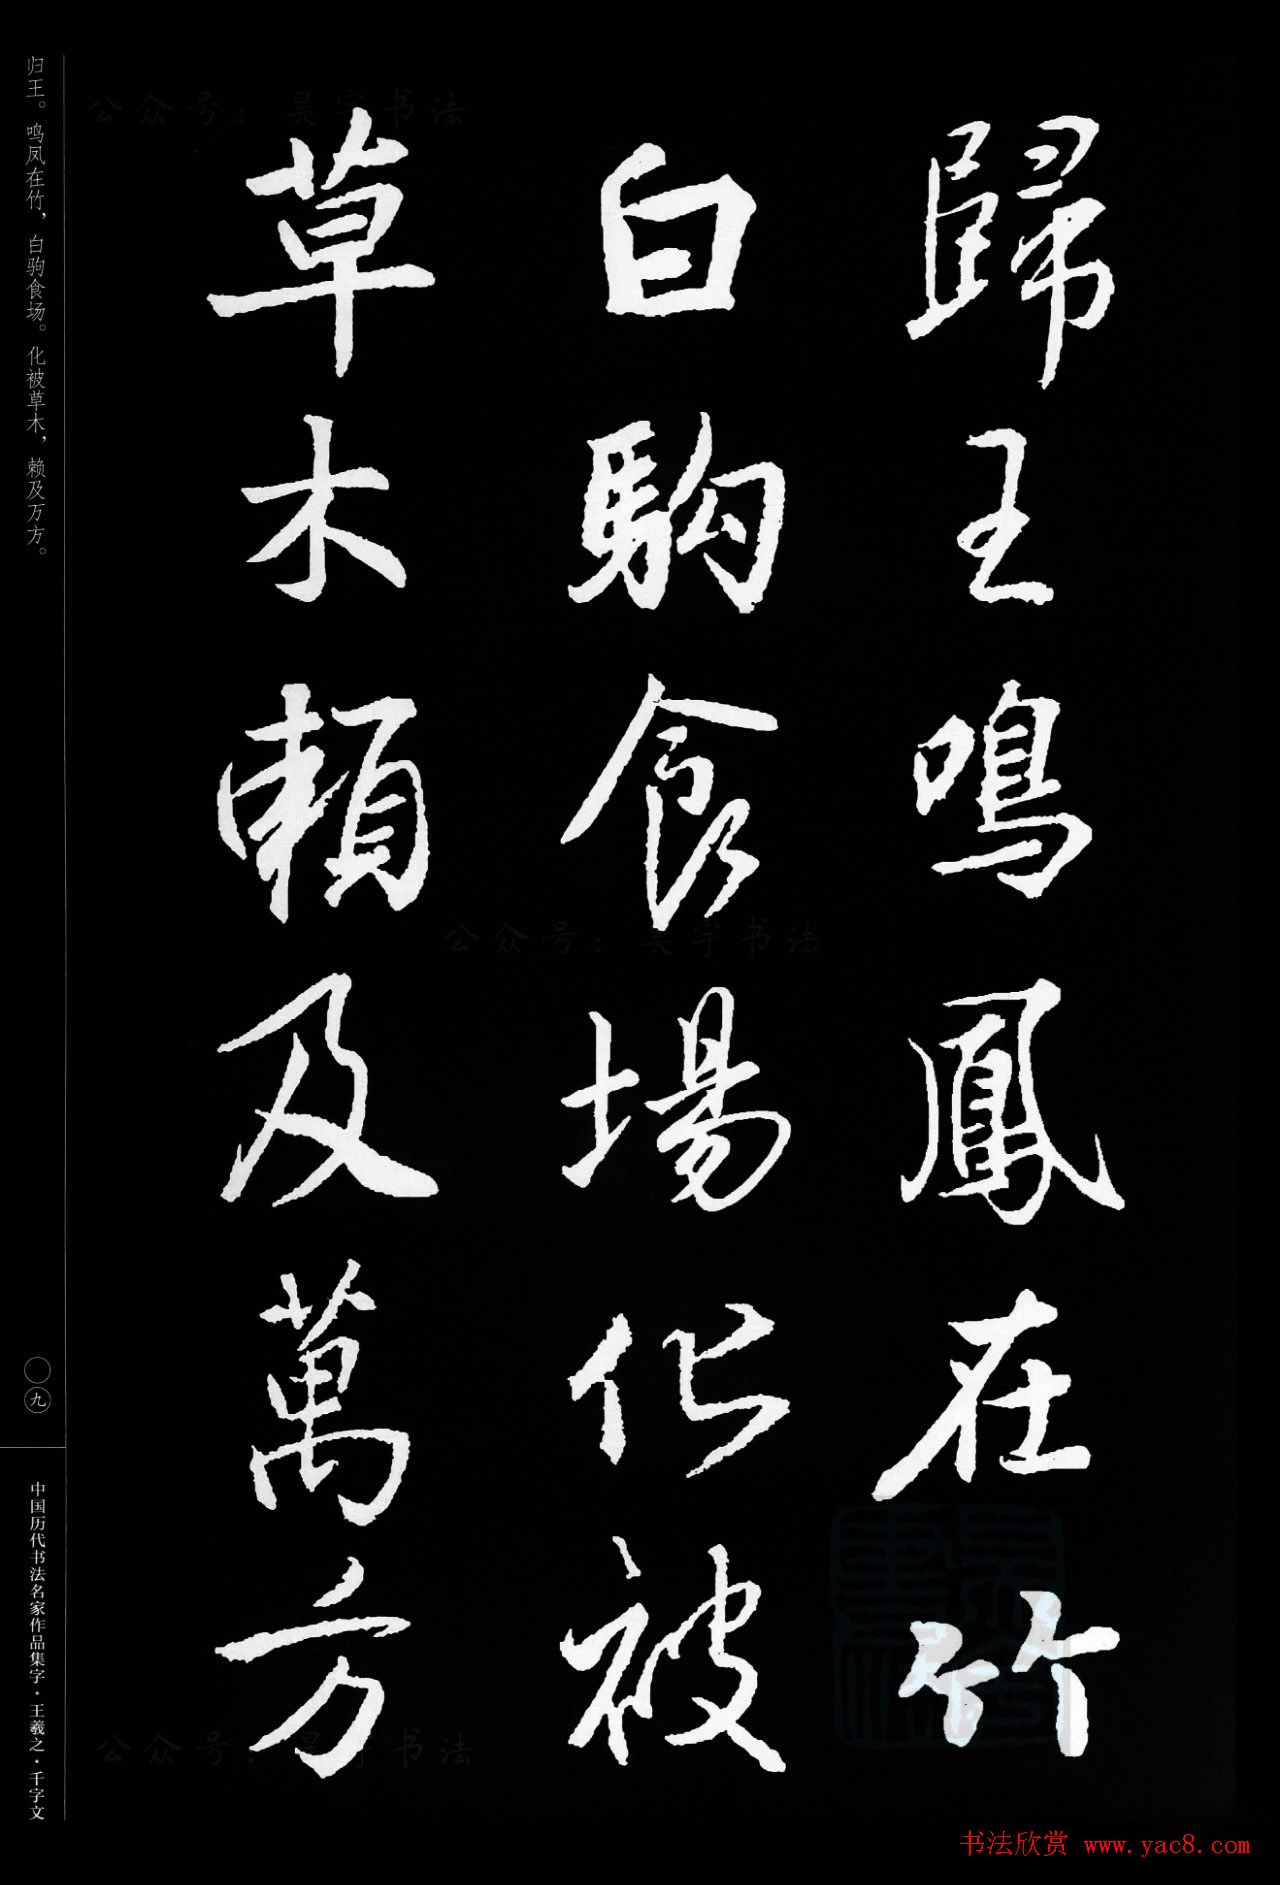 歸王鳴鳳在竹
白駒食場化被
草木賴及萬方
归王。鸣凤在竹，白驹食场。化被草木，赖及万方。
〇九
中国历代书法名家作品集字·王羲之·千字文
公众号：昊宇书法
公众号：昊宇书法
公众号：昊宇书法
书法欣赏 www.yac8.com